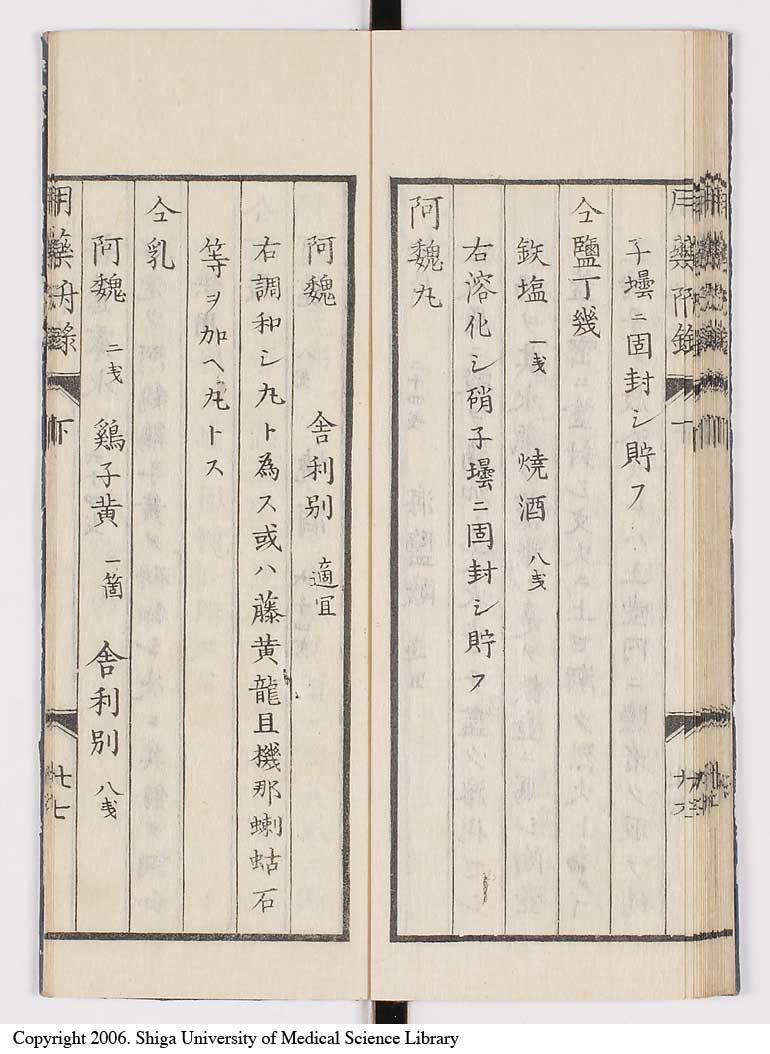 子壜ニ固封シ貯フ
仝鹽丁幾
鉃塩 一戔 焼酒 八戔
右溶化シ硝子壜ニ固封シ貯フ
阿魏丸
阿魏 舎利別 適宜
右調和シ丸ト為ス或ハ藤黄龍且機那蝲蛄石
等ヲ加ヘ丸トス
仝乳
阿魏 二戔 鷄子黄 一箇 舎利別 八戔
下
廿七
Copyright 2006. Shiga University of Medical Science Library